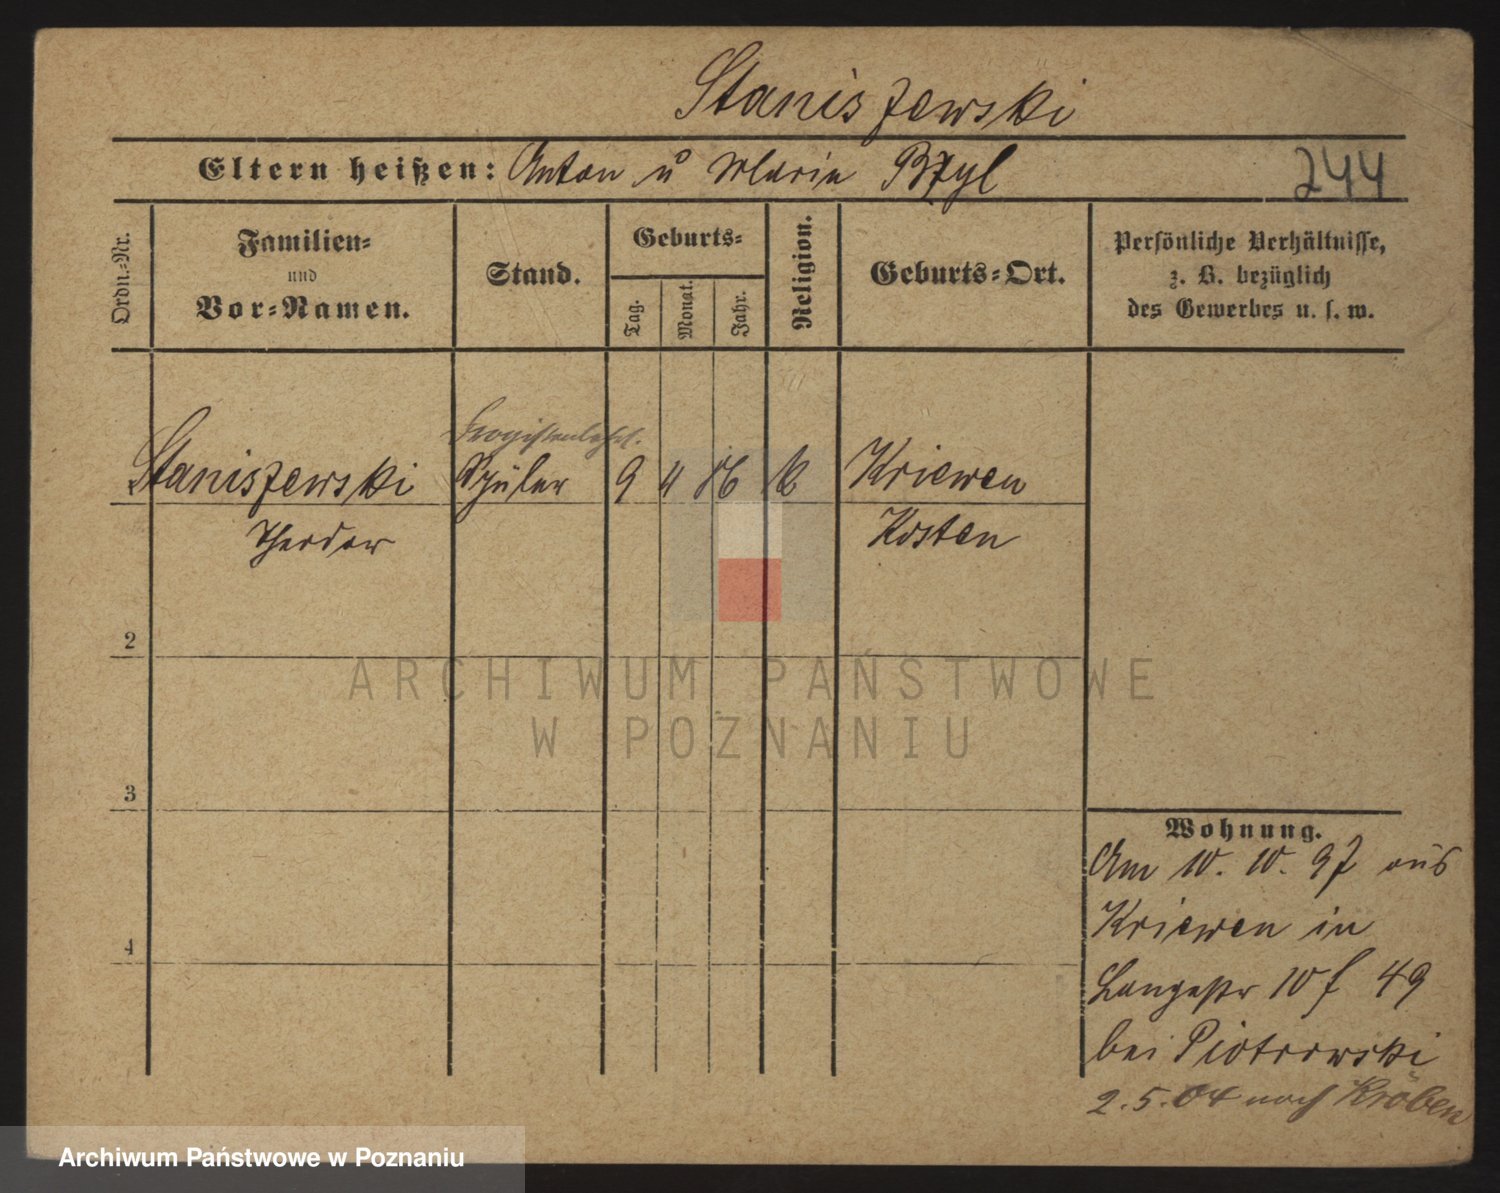 Staniszewski
Eltern heißen: Anton u Maria Bzyl
244
Ordn.-Nr.
Familien-
und
Vor-Namen.
Stand.
Geburts-
Tag.
Monat.
Jahr.
Religion.
Geburts-Ort.
Persönliche Verhältnisse,
z. B. bezüglich
des Gewerbes u. s. w.
Staniszewski Schüler 9 4 86 k Kriewen
Theodor Kosten
2
3
4
ARCHIWUM PAŃSTWOWE
W POZNANIU
Wohnung.
Am 10. 10. 97 aus
Kriewen in
Langestr 10 f 49
bei Piotrowski
2. 5. 04 nach Kröben
Archiwum Państwowe w Poznaniu